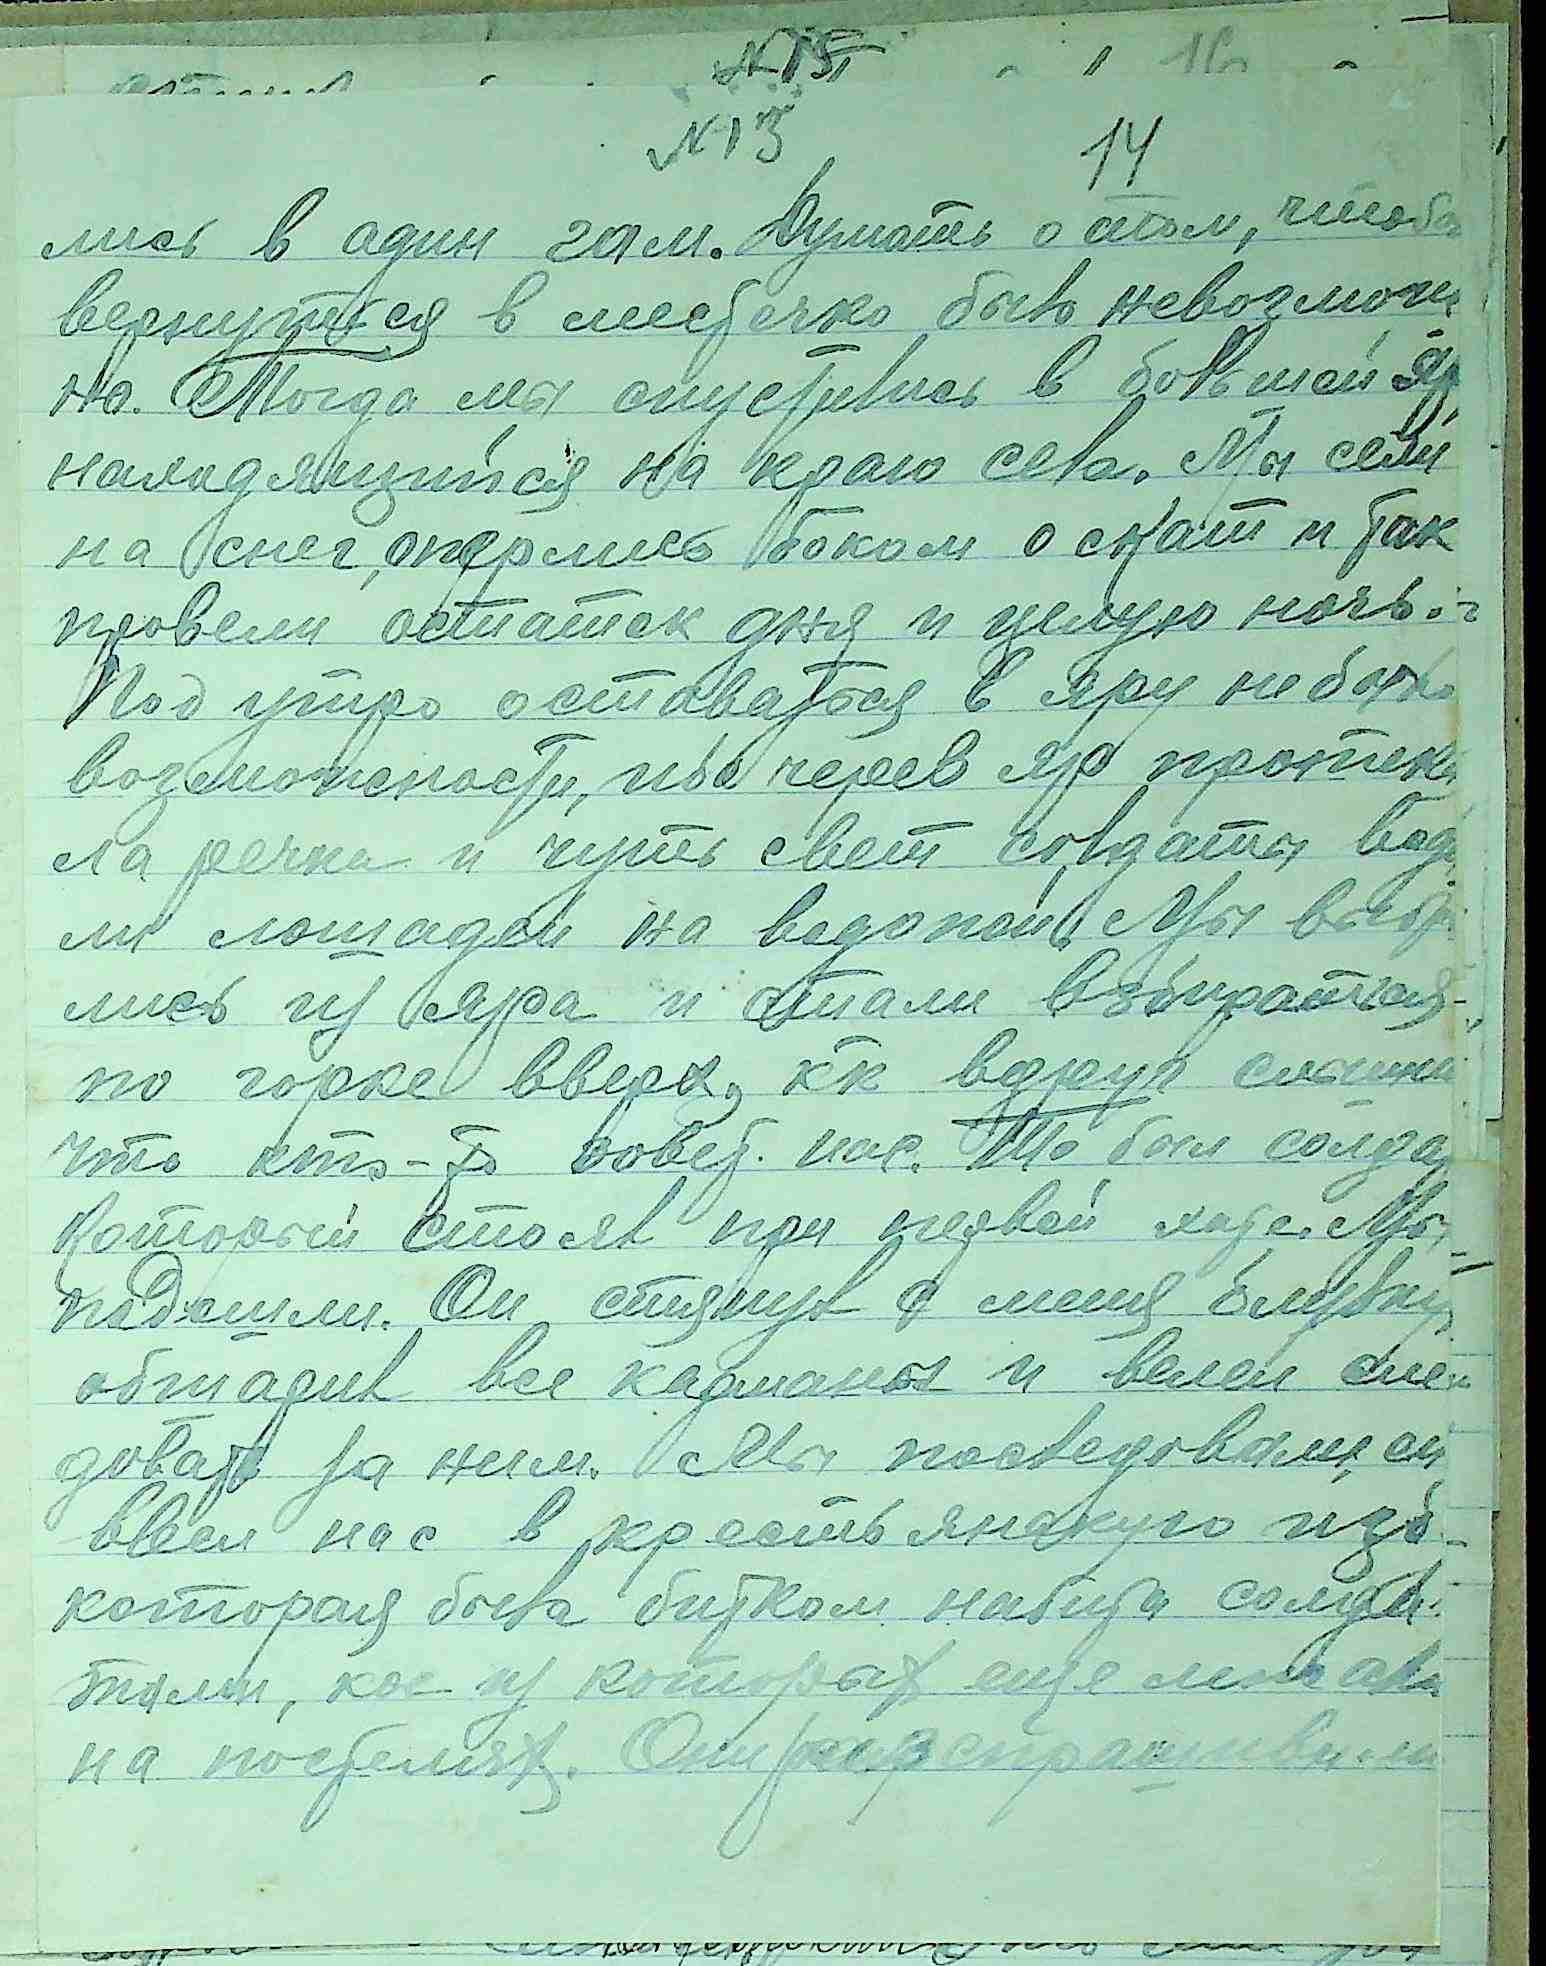 №15
16
№13
14
лись в один гам. Думать о том, чтобы
вернуться в местечко было невозмож
но. Тогда мы спустились в большой яр
находящийся на краю села. Мы сели
на снег, оперлись боком о скат и так
провели остаток дня и целую ночь.
Под утро оставаться в яру не было
возможности, ибо через яр протека
ла речка и чуть свет солдаты води
ли лошадей на водопой. Мы выбра
лись из яра и стали взбираться
по горке вверх, кк вдруг слышим
что кто-то зовет нас. То был солдат
который стоял при первой хате. Мы
подошли. Он стянул с меня блузку,
обшарил все карманы и велел сле
довать за ним. Мы последовали, он
ввел нас в крестьянскую избу
которая была битком набита солда
тами, кое из которых еще лежала
на постелях. Они расспрашивали